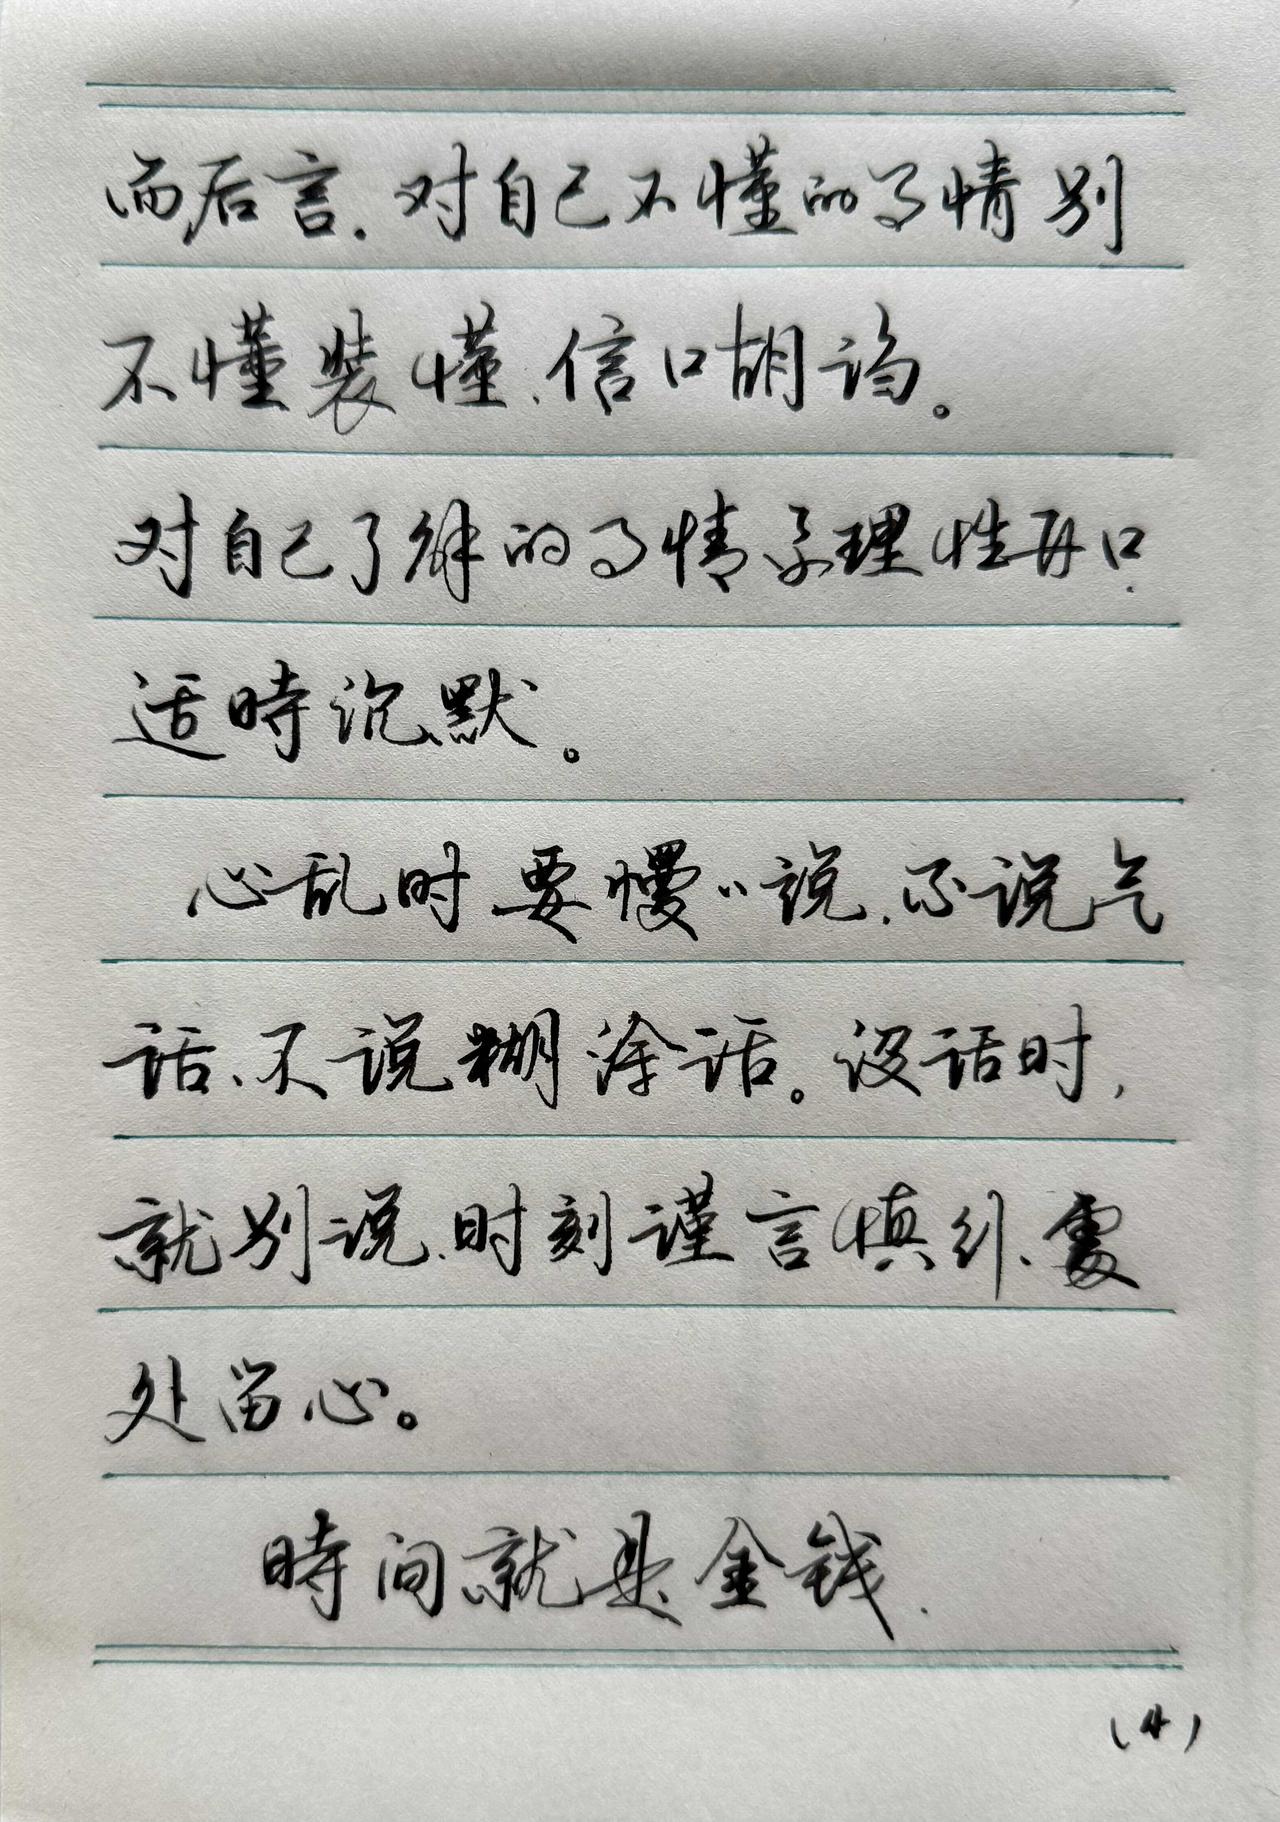 而后言.对自己不懂的事情别
不懂装懂、信口胡诌。
对自己了解的事情要理性开口.
适時沉默。
心乱时要慢〃说.不说气
话、不说糊涂话。没话时,
就别说.时刻谨言慎行、处
处留心。
時间就是金钱.
(4)